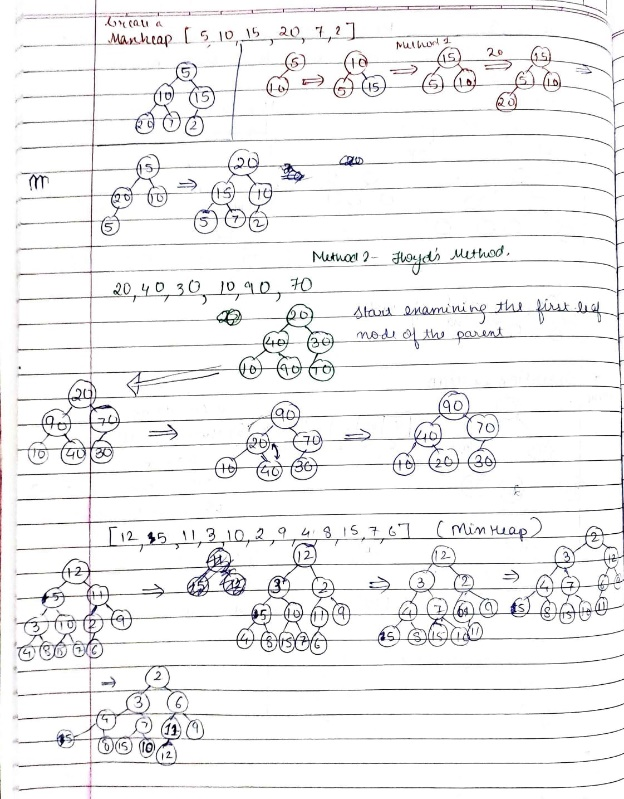 Create a
Maxheap [ 5, 10, 15, 20, 7, 2 ]
Method 1
5
10 15
20 7 2
5
10
⇒
10
5 15
⇒
15
5 10
20
⇒
15
5 10
20
⇒
15
20 10
5
⇒
20
15 10
5 7 2
Method 2- Floyd's Method.
20, 40, 30, 10, 90, 70
20
40 30
10 90 70
Start examining the first leaf
node of the parent
20
90 70
10 40 30
⇒
90
20 70
10 40 30
⇒
90
40 70
10 20 30
[ 12, 15, 11, 3, 10, 2, 9, 4, 8, 15, 7, 6 ] (Minheap)
12
15 11
3 10 2 9
4 8 15 7 6
⇒
12
3 2
15 10 11 9
4 8 15 7 6
⇒
12
3 2
4 7 6 9
15 8 15 10 11
⇒
2
3 12
4 7 6
15 8 15 10 11
⇒
2
3 6
4 7 11 9
15 8 15 10 12